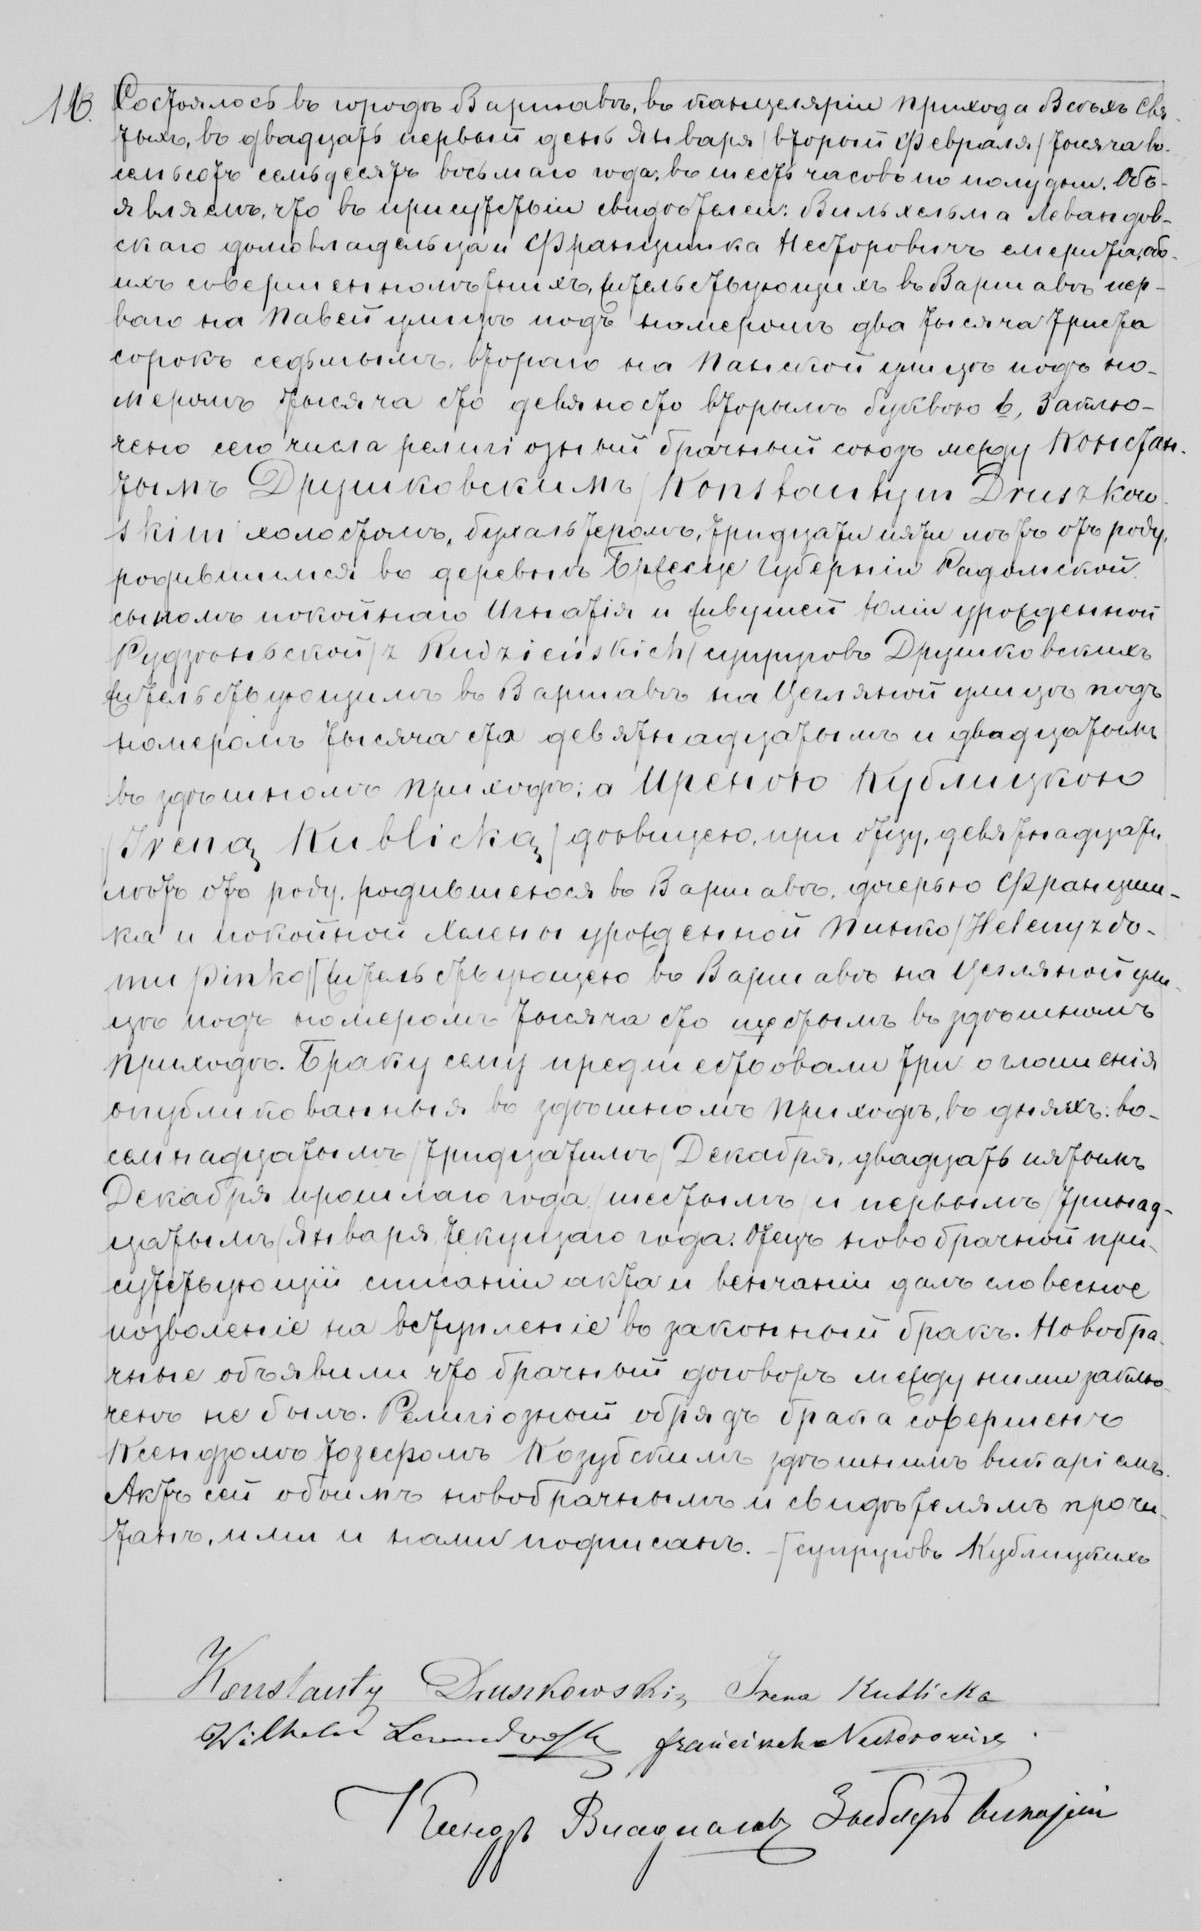 116. Состоялось въ городѣ Варшавѣ, въ канцеляріи прихода Всѣхъ Свя-
тыхъ, въ двадцать первый день Января /вторый Февраля/ тысяча во-
семьсотъ семьдесятъ восьмаго года, въ шесть часовъ по полудни. Объ-
являемъ, что въ присутствіи свидѣтелей: Вильхельма Левандов-
скаго домовладельца и Францишка Несторовичъ емерита, обо-
ихъ совершеннолѣтнихъ, жительствующихъ въ Варшавѣ пер-
ваго на Павей улицѣ подъ номеромъ два тысяча триста
сорокъ седьмымъ, втораго на Панской улицѣ подъ но-
меромъ тысяча сто девяносто вторымъ буквою b, Заклю-
чено сего числа религіозный брачный союзъ между Констан-
тымъ Друшковскимъ /Konstantym Druszkow-
skim/ холостомъ, бухальтеромъ, тридцати пяти лѣтъ отъ роду,
родившимся въ деревнѣ Бржесце Губерніи Радомской
сыномъ покойнаго Игнатія и живущей Юліи урожденной
Рудзѣньской /z Rudzieńskich/ супруговъ Друшковскихъ
жительствующимъ въ Варшавѣ на Цегляной улицѣ подъ
номеромъ тысяча ста девятнадцатымъ и двадцатымъ
въ здѣшномъ приходѣ; а Иреною Кублицкою
/Ireną Kublicką/ дѣвицею, при отцу, девятнадцати
лѣтъ отъ роду, родившеюся въ Варшавѣ, дочерью Францишка-
ка и покойной Хелены урожденной Пинко /Heleny z do-
mu Pinko/ жительствующею въ Варшавѣ на Цегляной ули-
цѣ подъ номеромъ тысяча сто шестымъ въ здѣшномъ
приходѣ. Браку сему предшествовали три оглошенія
опубликованныя въ здѣшномъ приходѣ, въ дняхъ: во-
семнадцатымъ /тридцатымъ/ Декабря, двадцать пятымъ
Декабря прошлаго года /шестымъ/ и первымъ /тринад-
цатымъ/ Января текущаго года. Отецъ новобрачной при-
сутствующій списаніи акта и венчаніи далъ словесное
позволеніе на вступленіе въ законный бракъ. Новобра-
чные объявили что брачный договоръ между ними заклю-
ченъ не былъ. Религіозный обрядъ брака совершенъ
Ксендзомъ Іозефомъ Козубскимъ здѣшнимъ викаріемъ.
Актъ сей обоимъ новобрачнымъ и свидѣтелямъ прочи-
танъ, ими и нами подписанъ. – /супруговъ Кублицкихъ
Konstanty Druszkowski Irena Kublicka
Wilhelm Lewandowski Franciszek Nestorowicz
Ксендзъ